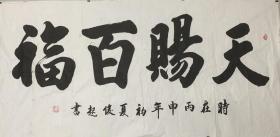 天賜百福
時在丙申年初夏俊超書